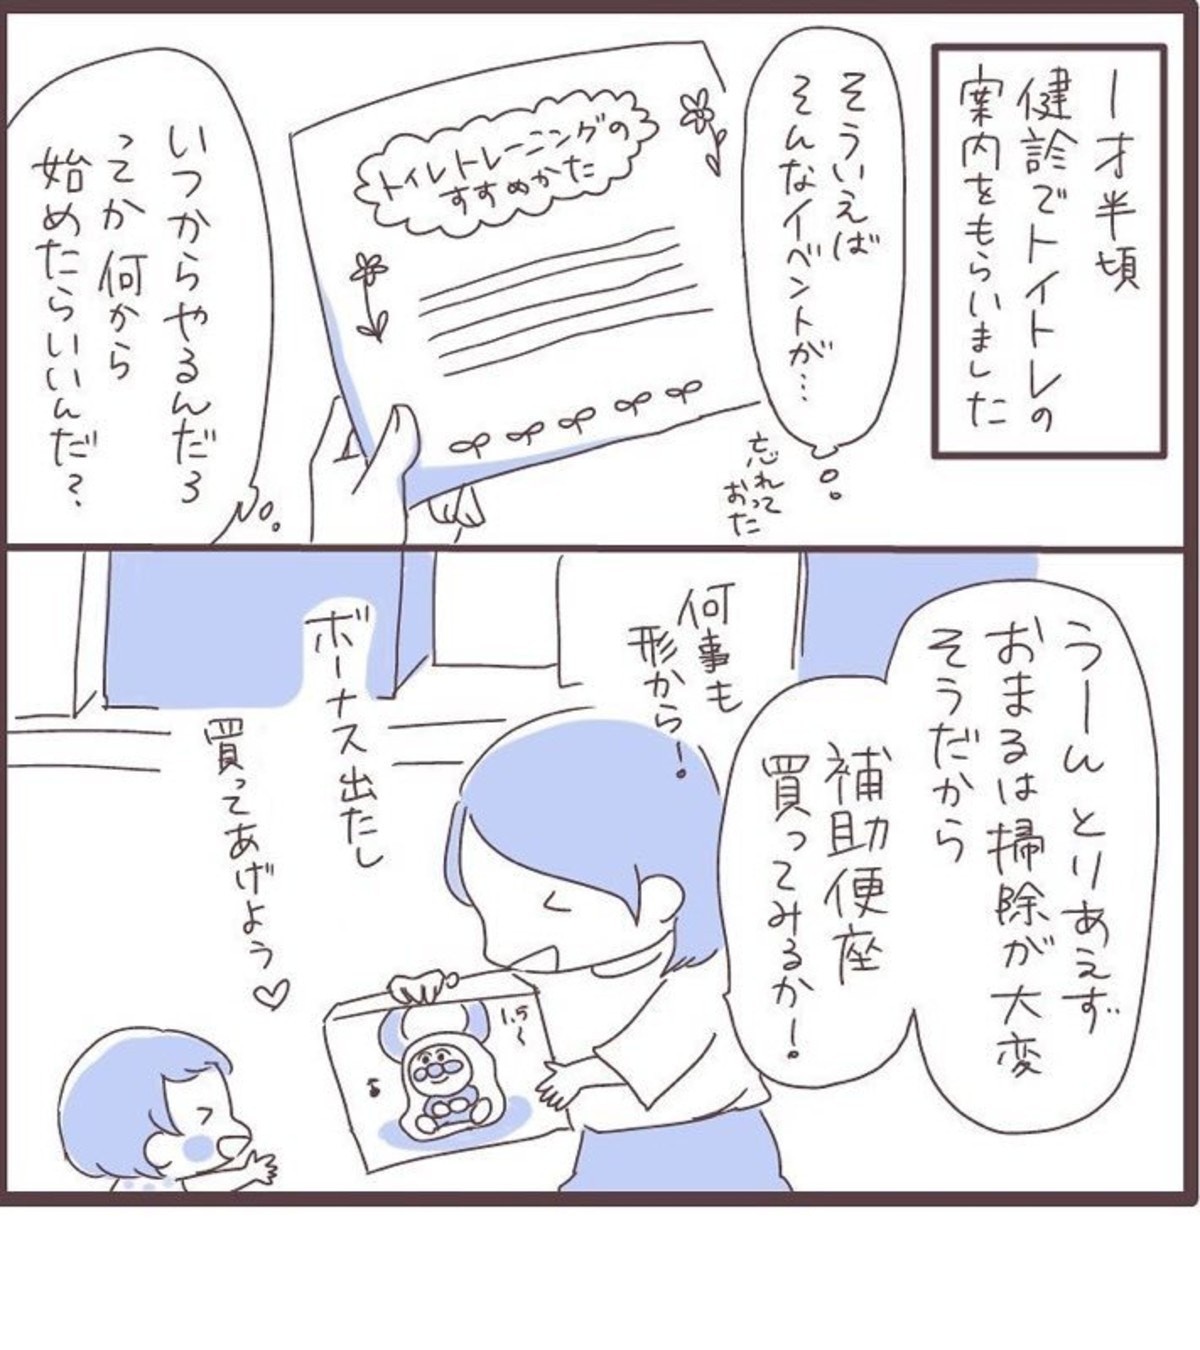 一才半頃
健診でトイトレの
案内をもらいました
そういえば
そんなイベントが…
忘れって
おた
トイレトレーニングの
すすめかた
いつからやるんだろ
てか何から
始めたらいいんだ？
うーんとりあえず
おまるは掃除が大変
そうだから
補助便座
買ってみるか！
何事も
形から！
ボーナス出たし
買ってあげよう♡
1.5〜
♪